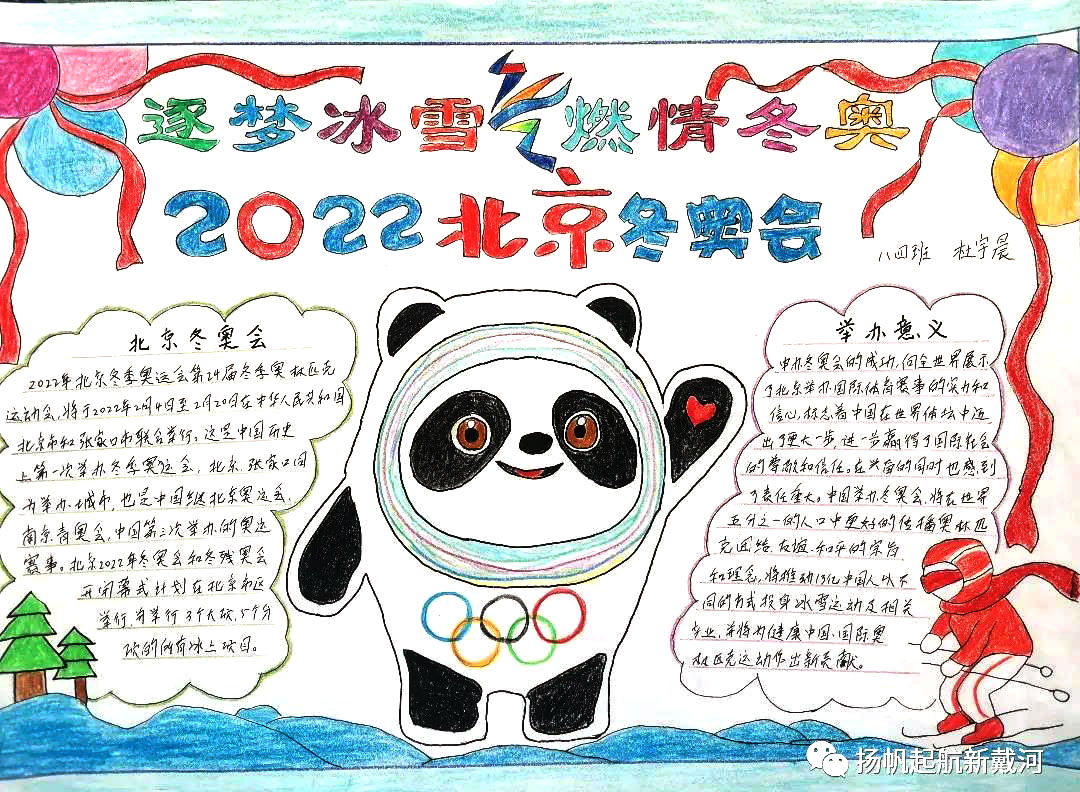 逐梦冰雪 燃情冬奥
2022北京冬奥会
八四班 杜宇晨
北京冬奥会
2022年北京冬季奥运会第24届冬季奥林匹克
运动会,将于2022年2月4日至2月20日在中华人民共和国
北京市和张家口市联合举行。这是中国历史
上第一次举办冬季奥运会,北京、张家口同
为举办城市,也是中国继北京奥运会、
南京青奥会,中国第三次举办的奥运
赛事。北京2022年冬奥会和冬残奥会
开闭幕式计划在北京市区
举行,并举行3个大项,5个分
项的所有冰上项目。
举办意义
申办冬奥会的成功,向全世界展示
了北京举办国际体育赛事的实力和
信心,标志着中国在世界体坛中迈
出了更大一步,进一步赢得了国际社会
的尊敬和信任。在兴奋的同时也感到
了责任重大。中国举办冬奥会,将在世界
五分之一的人口中更好的传播奥林匹
克团结、友谊、和平的宗旨
和理念,将推动13亿中国人以不
同的方式投身冰雪运动及相关
产业,并将为健康中国、国际奥
林匹克运动作出新贡献。
扬帆起航新戴河